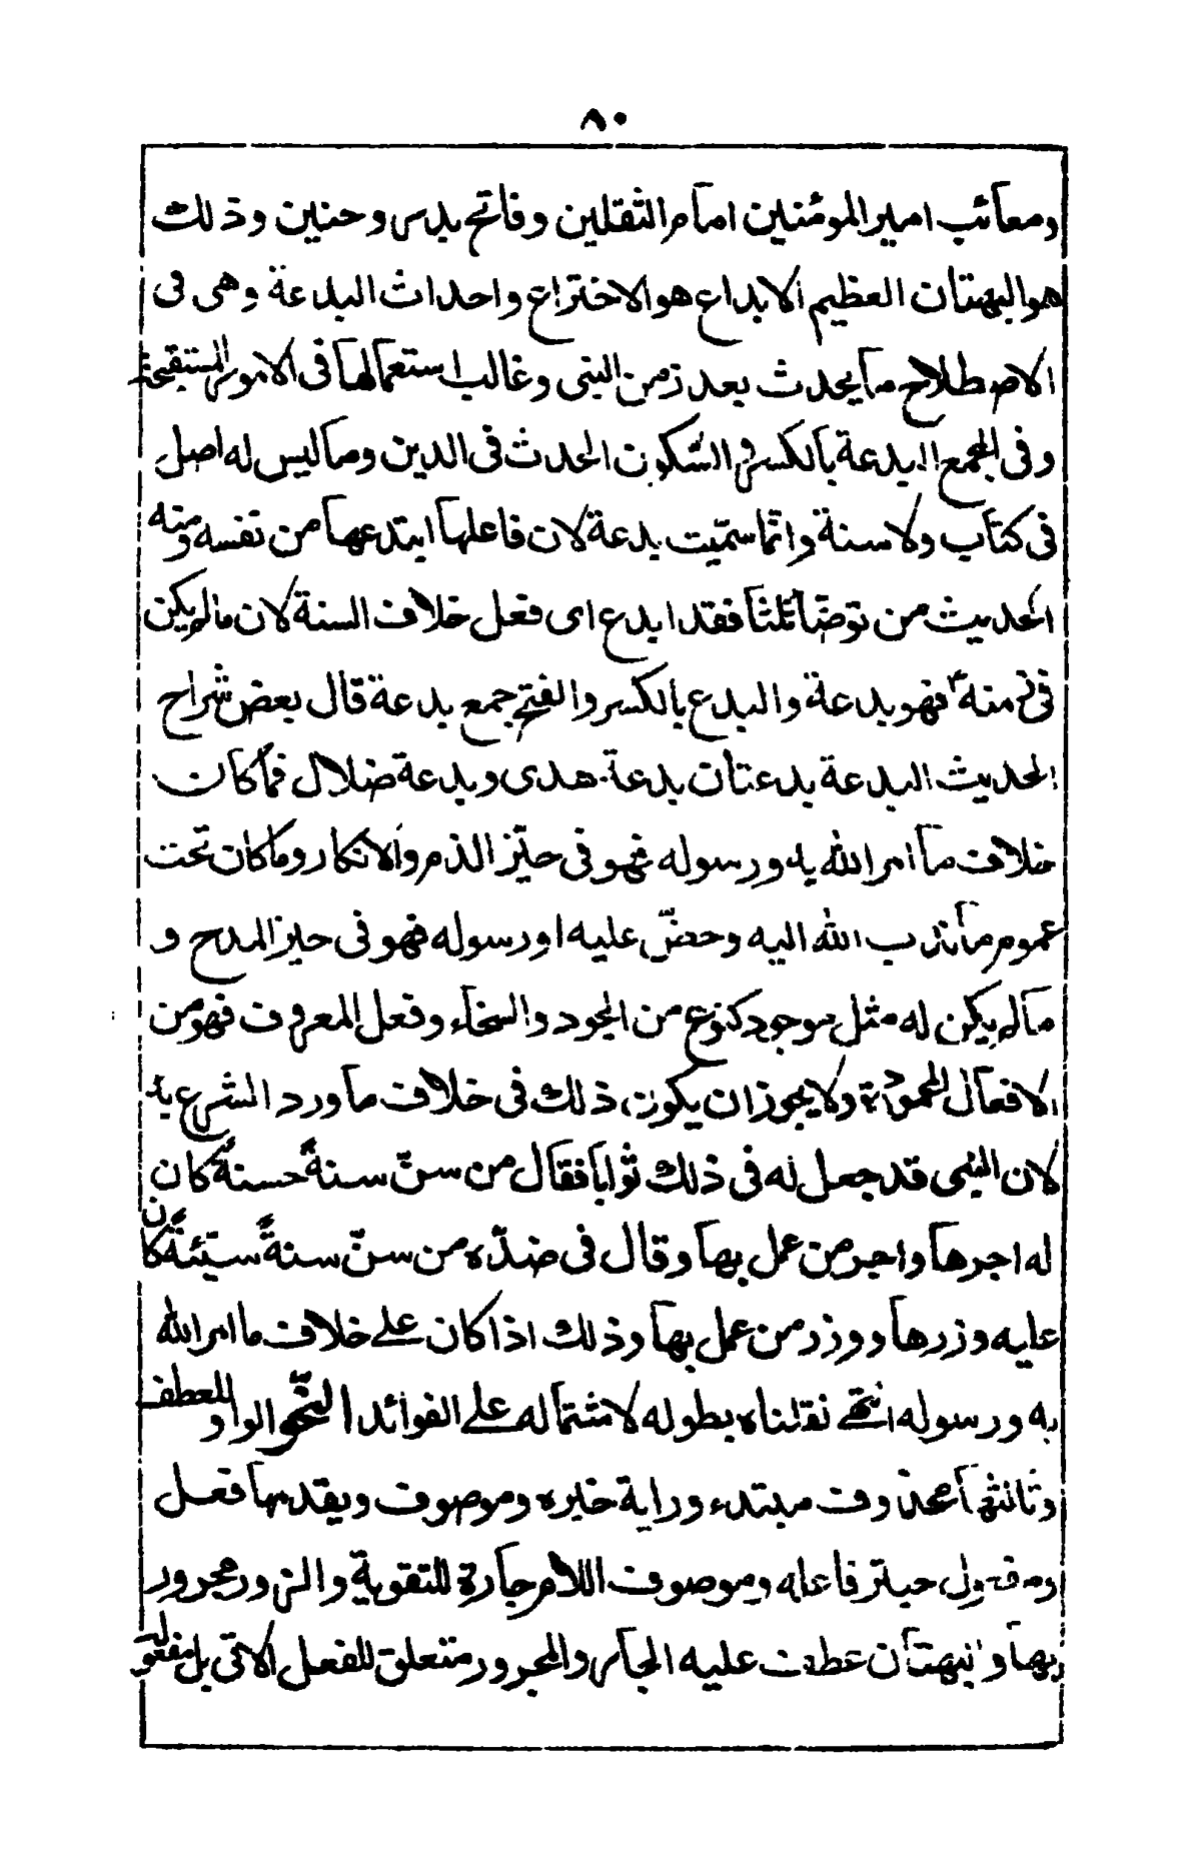 ٨٠
ومعائب امير المومنين امام الثقلين وفاتح بدر وحنين وذلك
هو البهتان العظيم الابداع هو الاختراع واحداث البدعة وهى فى
الاصطلاح ما يحدث بعد زمن النبى وغالب استعمالها فى الامور المستقبحة
وفى المجمع البدعة بالكسر والسّكون الحدث فى الدين وما ليس له اصل
فى كتاب ولا سنة وانّما سمّيت بدعة لان فاعلها ابتدعها من نفسه ومنه
الحديث من توضّا ثلثا فقد ابدع اى فعل خلاف السنة لان ما لم يكن
فى زمنه فهو بدعة والبدع بالكسر والفتح جمع بدعة قال بعض شراح
الحديث البدعة بدعتان بدعة هدى وبدعة ضلال فما كان
خلاف ما امر الله به ورسوله فهو فى حيّز الذم والانكار وما كان تحت
عموم ما ندب الله اليه وحضّ عليه او رسوله فهو فى حيز المدح و
ما لم يكن له مثل موجود كنوع من الجود والسخاء وفعل المعروف فهو من
الافعال المحمودة ولا يجوز ان يكون ذلك فى خلاف ما ورد الشرع به
لان النبى قد جعل له فى ذلك ثوابا فقال من سنّ سنةً حسنةً كان
له اجرها واجر من عمل بها وقال فى ضدّه من سنّ سنةً سيّئةً كان
عليه وزرها ووزر من عمل بها وذلك اذا كان على خلاف ما امر الله
به ورسوله انتهى نقلناه بطوله لاشتماله على الفوائد النّحو الواو للعطف
وثانثها محذوف مبتدء وراية خبره وموصوف ويقدمها فعل
ومفعول حبتر فاعله وموصوف اللام جارة للتقوية والزور مجرور
بها والبهتان عطف عليه الجار والمجرور متعلق للفعل الاتى بل مفعوله